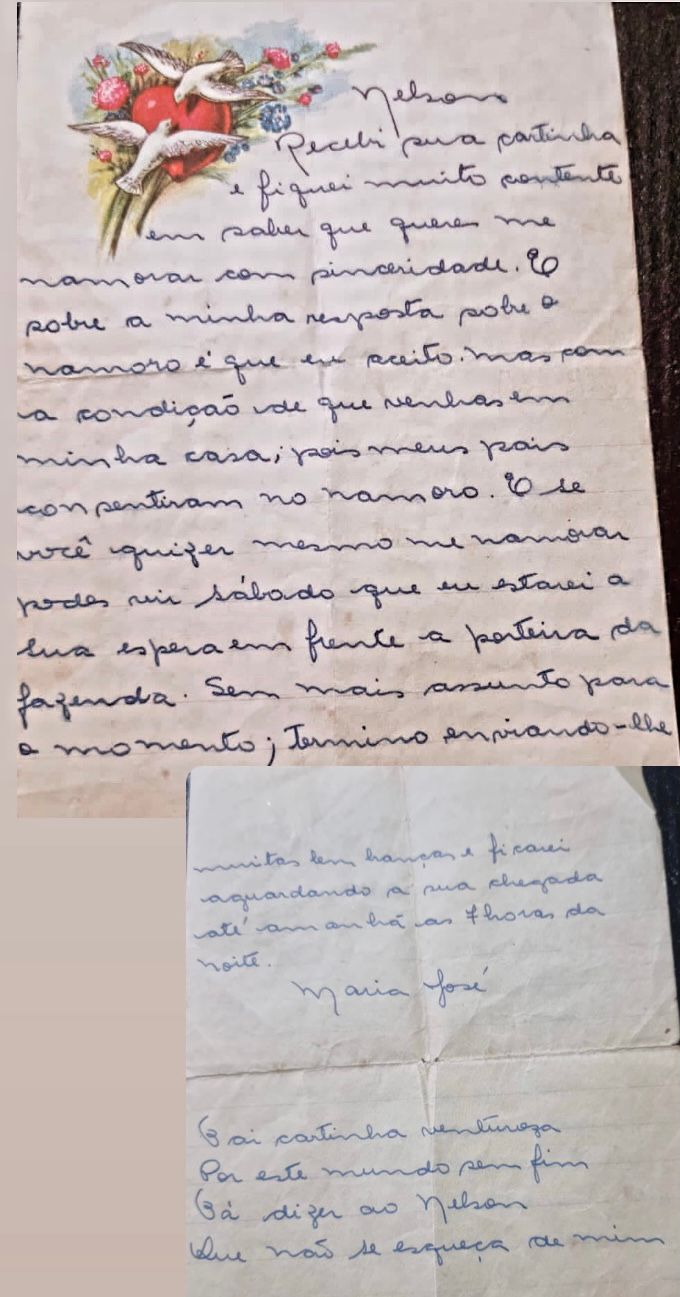 Nelson
Recebi sua cartinha
e fiquei muito contente
em saber que queres me
namorar com sinceridade. E
sobre a minha resposta sobre o
namoro é que eu aceito. mas com
a condição de que venhas em
minha casa; pois meus pais
consentiram no namoro. E se
você quizer mesmo me namorar
podes vir sábado que eu estarei a
sua espera em frente a porteira da
fazenda. Sem mais assunto para
o momento; Termino enviando-lhe
muitas lembranças e ficarei
aguardando a sua chegada
até amanhá as 7 horas da
noite.
Maria José
Vai cartinha ventureza
Por este mundo sem fim
Vá dizer ao Nelson
Que não se esqueça de mim